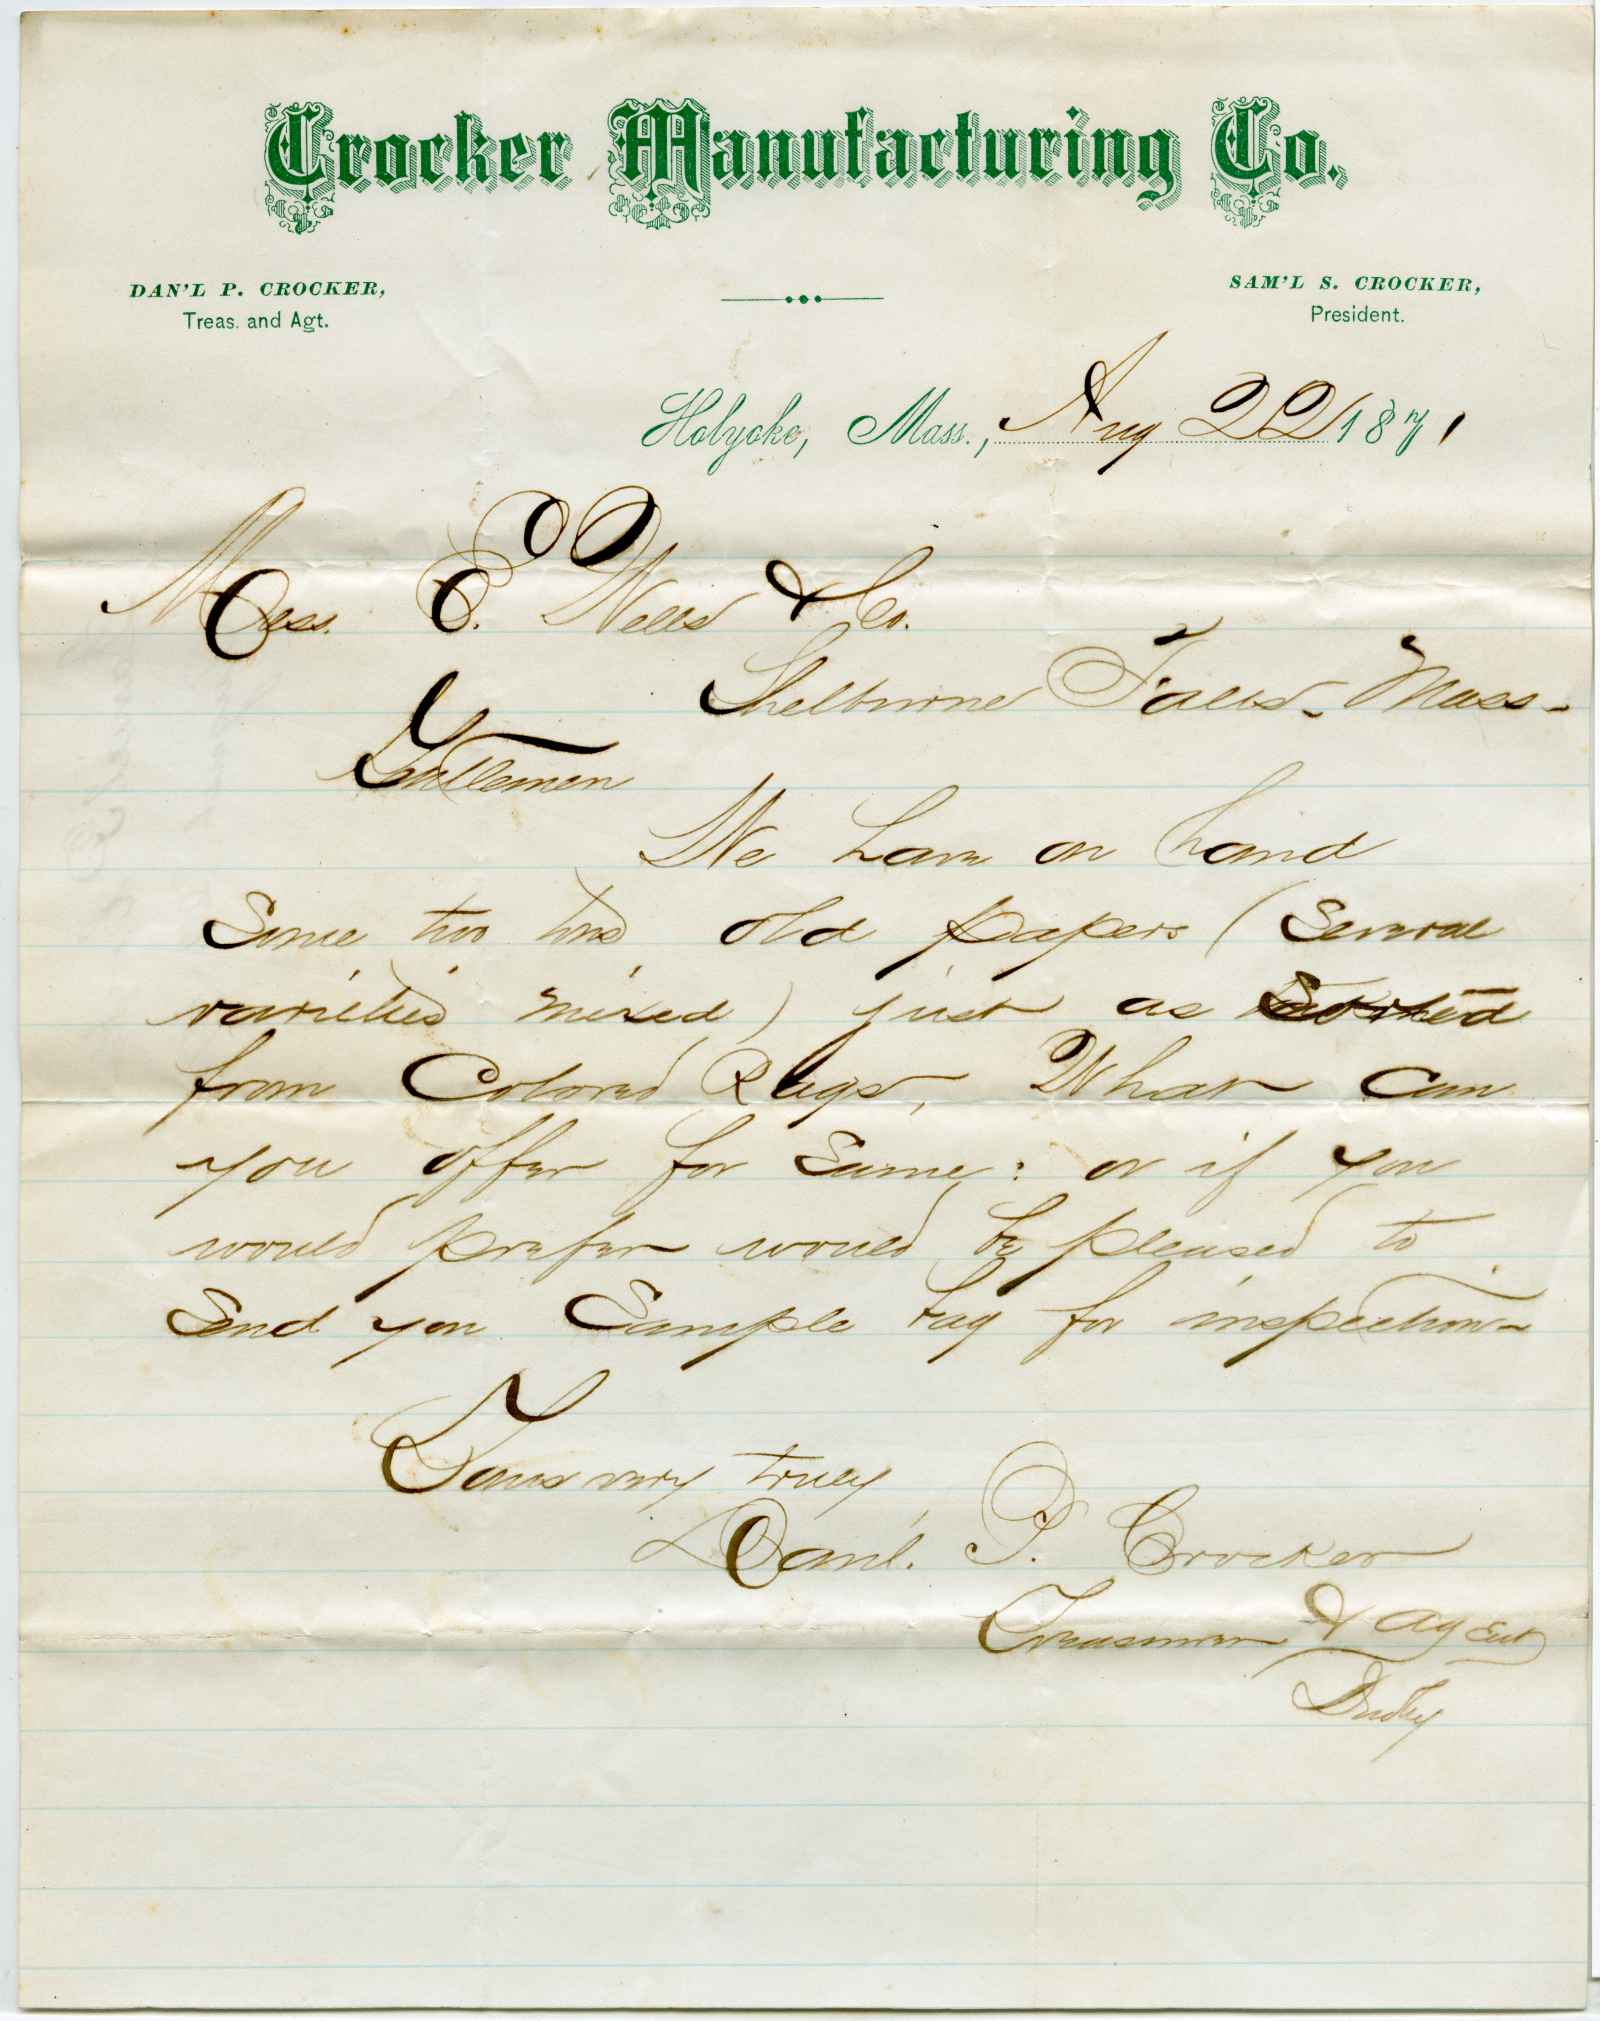 Crocker Manufacturing Co.
DAN'L P. CROCKER,
Treas. and Agt.
SAM'L S. CROCKER,
President.
Holyoke, Mass., Aug 22 1871
Mess. E. Wells & Co.
Shelburne Falls - Mass -
Gentlemen
We have on hand
Some two tons old papers (Several
varieties mixed) just as Sorted
from Colored Rags, What can
you offer for Same: or if you
would prefer would be pleased to
Send you Sample bag for inspection -
Yours very truly
Danl. P. Crocker
Treasurer & Agent